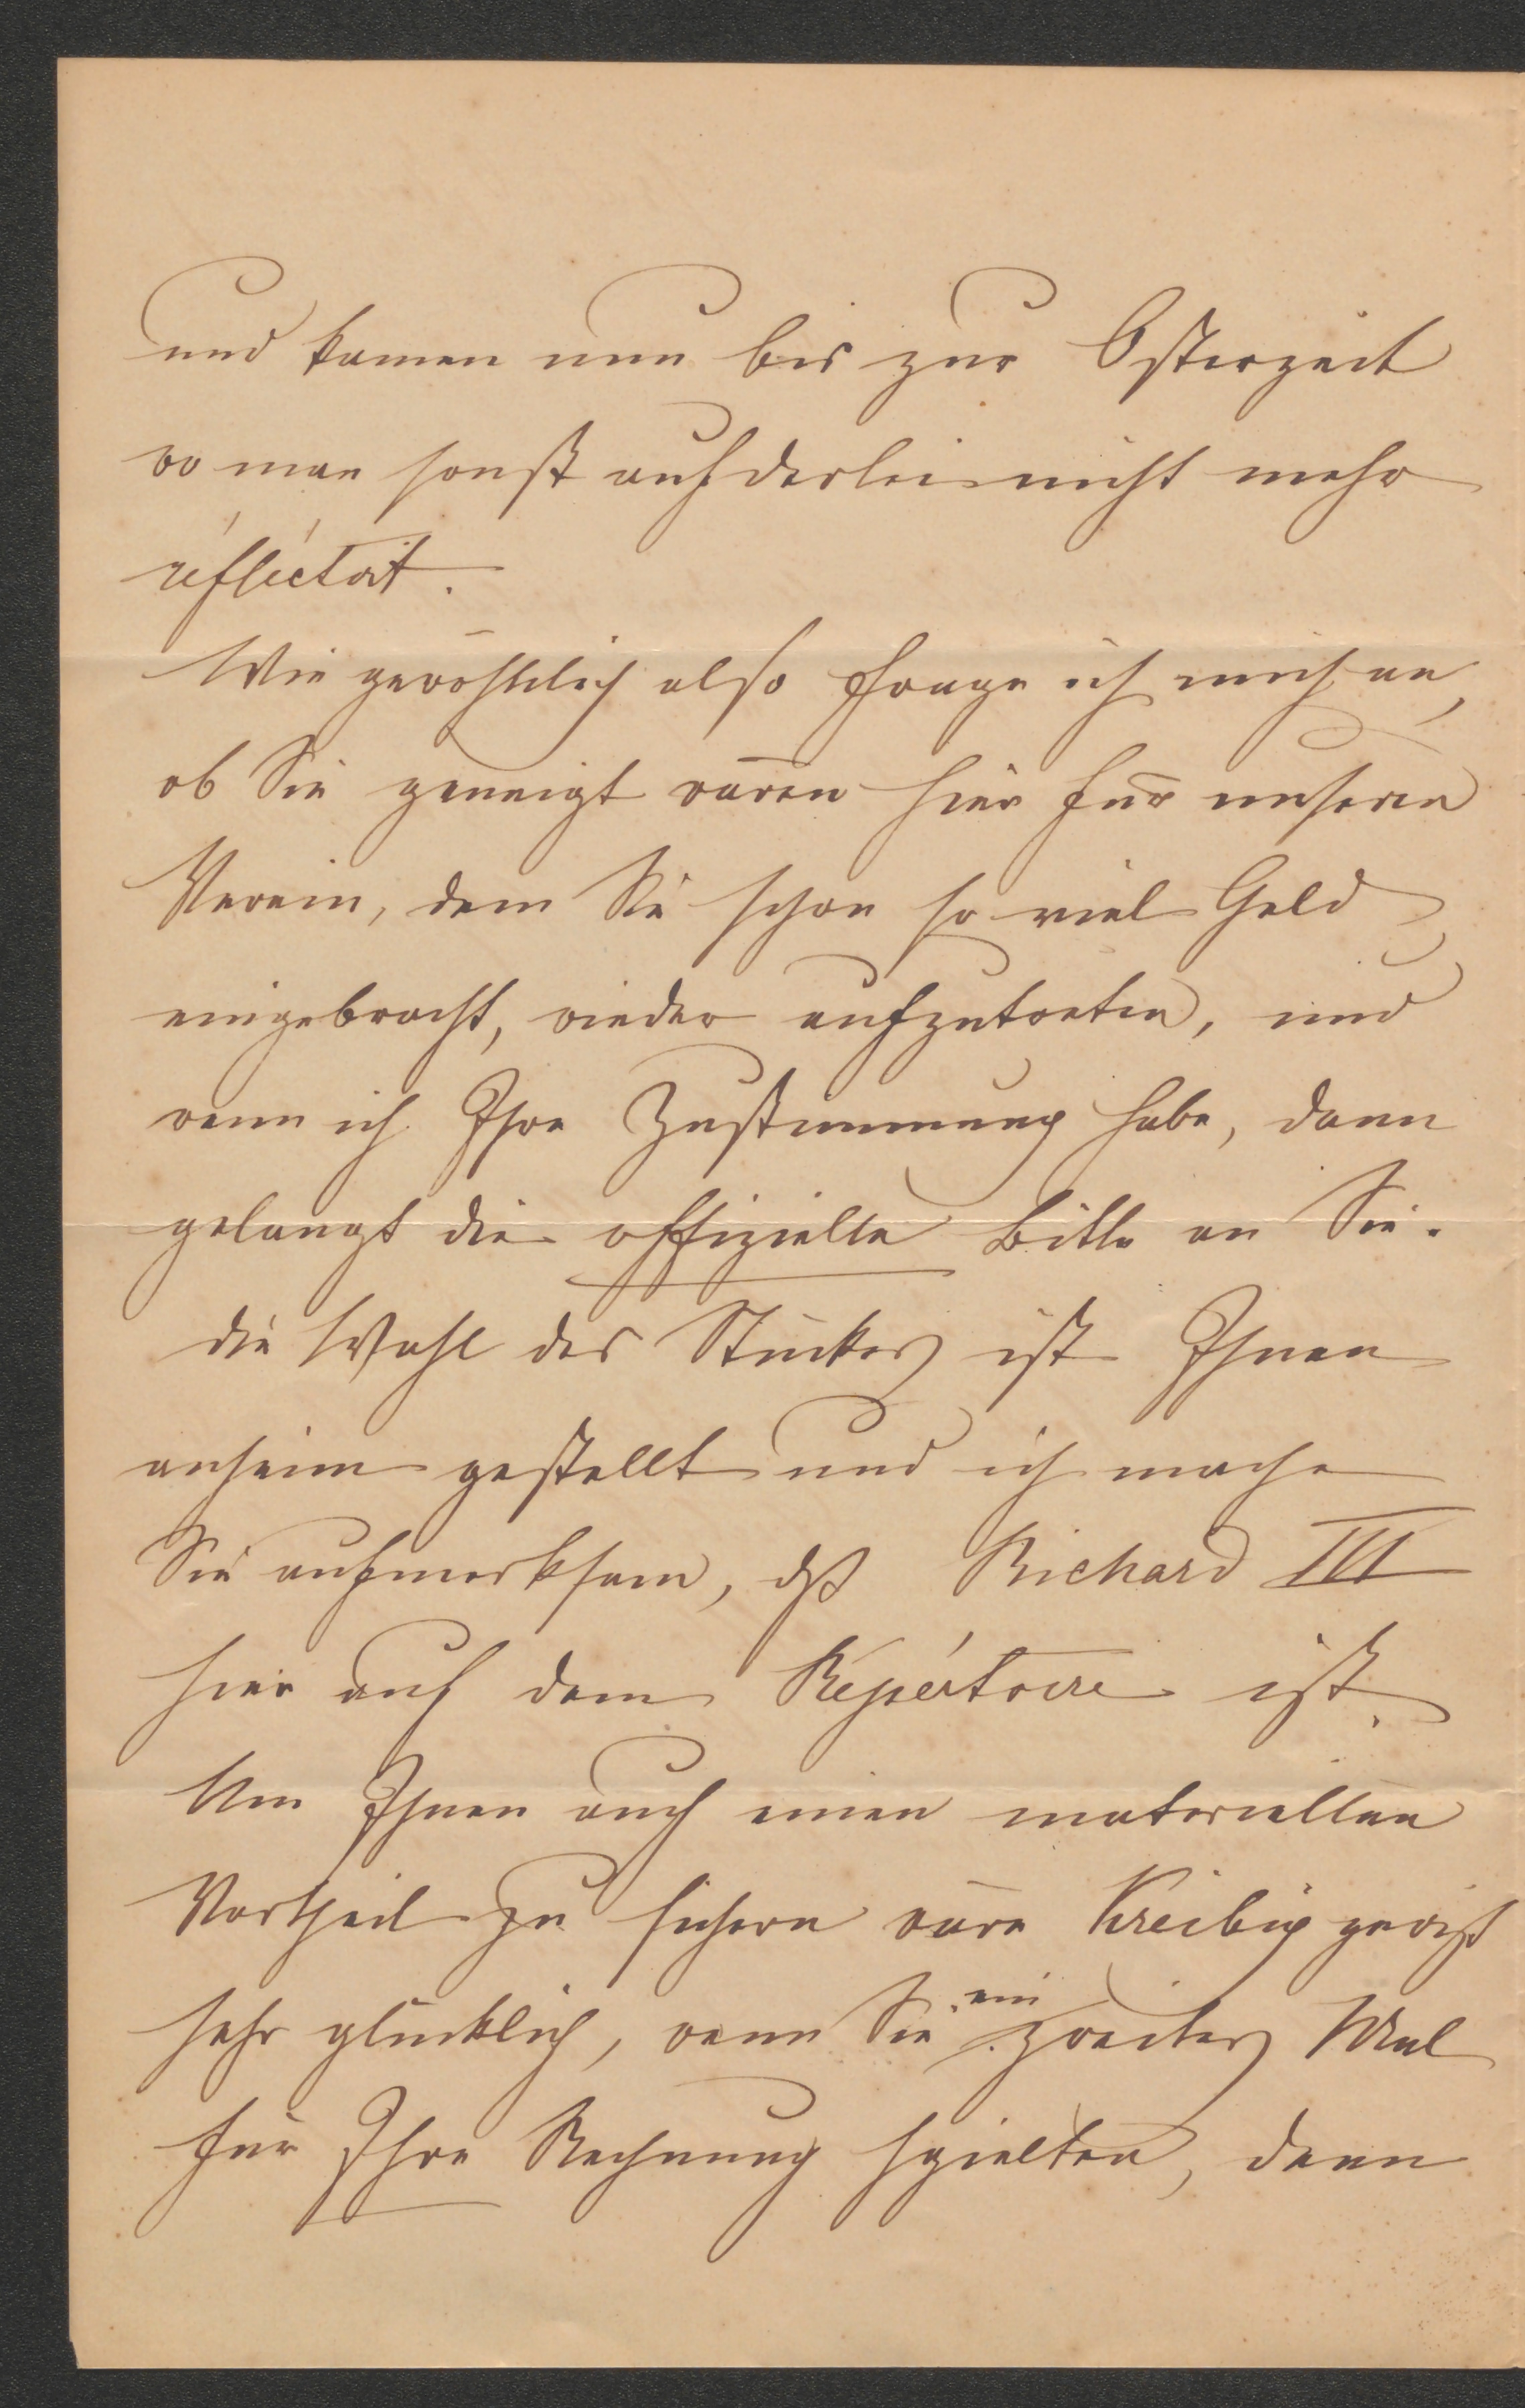 und kamen nun bis zur Osterzeit
wo man sonst auf derlei nicht mehr
réfléctirt.
Wie gewöhnlich also frage ich mich an,
ob Sie geneigt wären hier für unseren
Verein, dem Sie schon so viel Geld
eingebracht, wieder aufzutreten, und
wenn ich Ihre Zustimmung habe, dann
gelangt die offizielle Bitte an Sie.
die Wahl des Stückes ist Ihnen
anheim gestellt und ich mache
Sie aufmerksam, dß Richard III
hier auf dem Repértoire ist.
Um Ihnen auch einen materiellen
Vortheil zu sichern wäre Kreibig gewiß
sehr glücklich, wenn Sie ein zweites Mal
für Ihre Rechnung spielten, denn